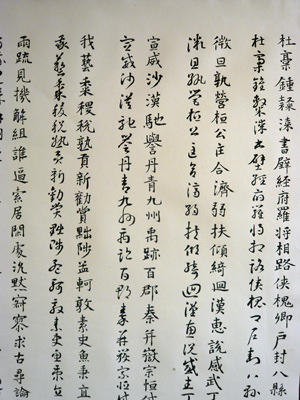 杜稾鍾隸漆書壁經府羅將相路俠槐卿戶封八縣
杜稾鍾隸漆書壁經府羅將相路俠槐卿戶封八縣
微旦孰營桓公匡合濟弱扶傾綺迴漢惠說感武丁
微旦孰營桓公匡合濟弱扶傾綺迴漢惠說感武丁
宣威沙漠馳譽丹青九州禹跡百郡秦并嶽宗恒岱
宣威沙漠馳譽丹青九州禹跡百郡秦并嶽宗恒岱
我藝黍稷稅熟貢新勸賞黜陟孟軻敦素史魚秉直
我藝黍稷稅熟貢新勸賞黜陟孟軻敦素史魚秉直
兩疏見機解組誰逼索居閑處沉默寂寥求古尋論